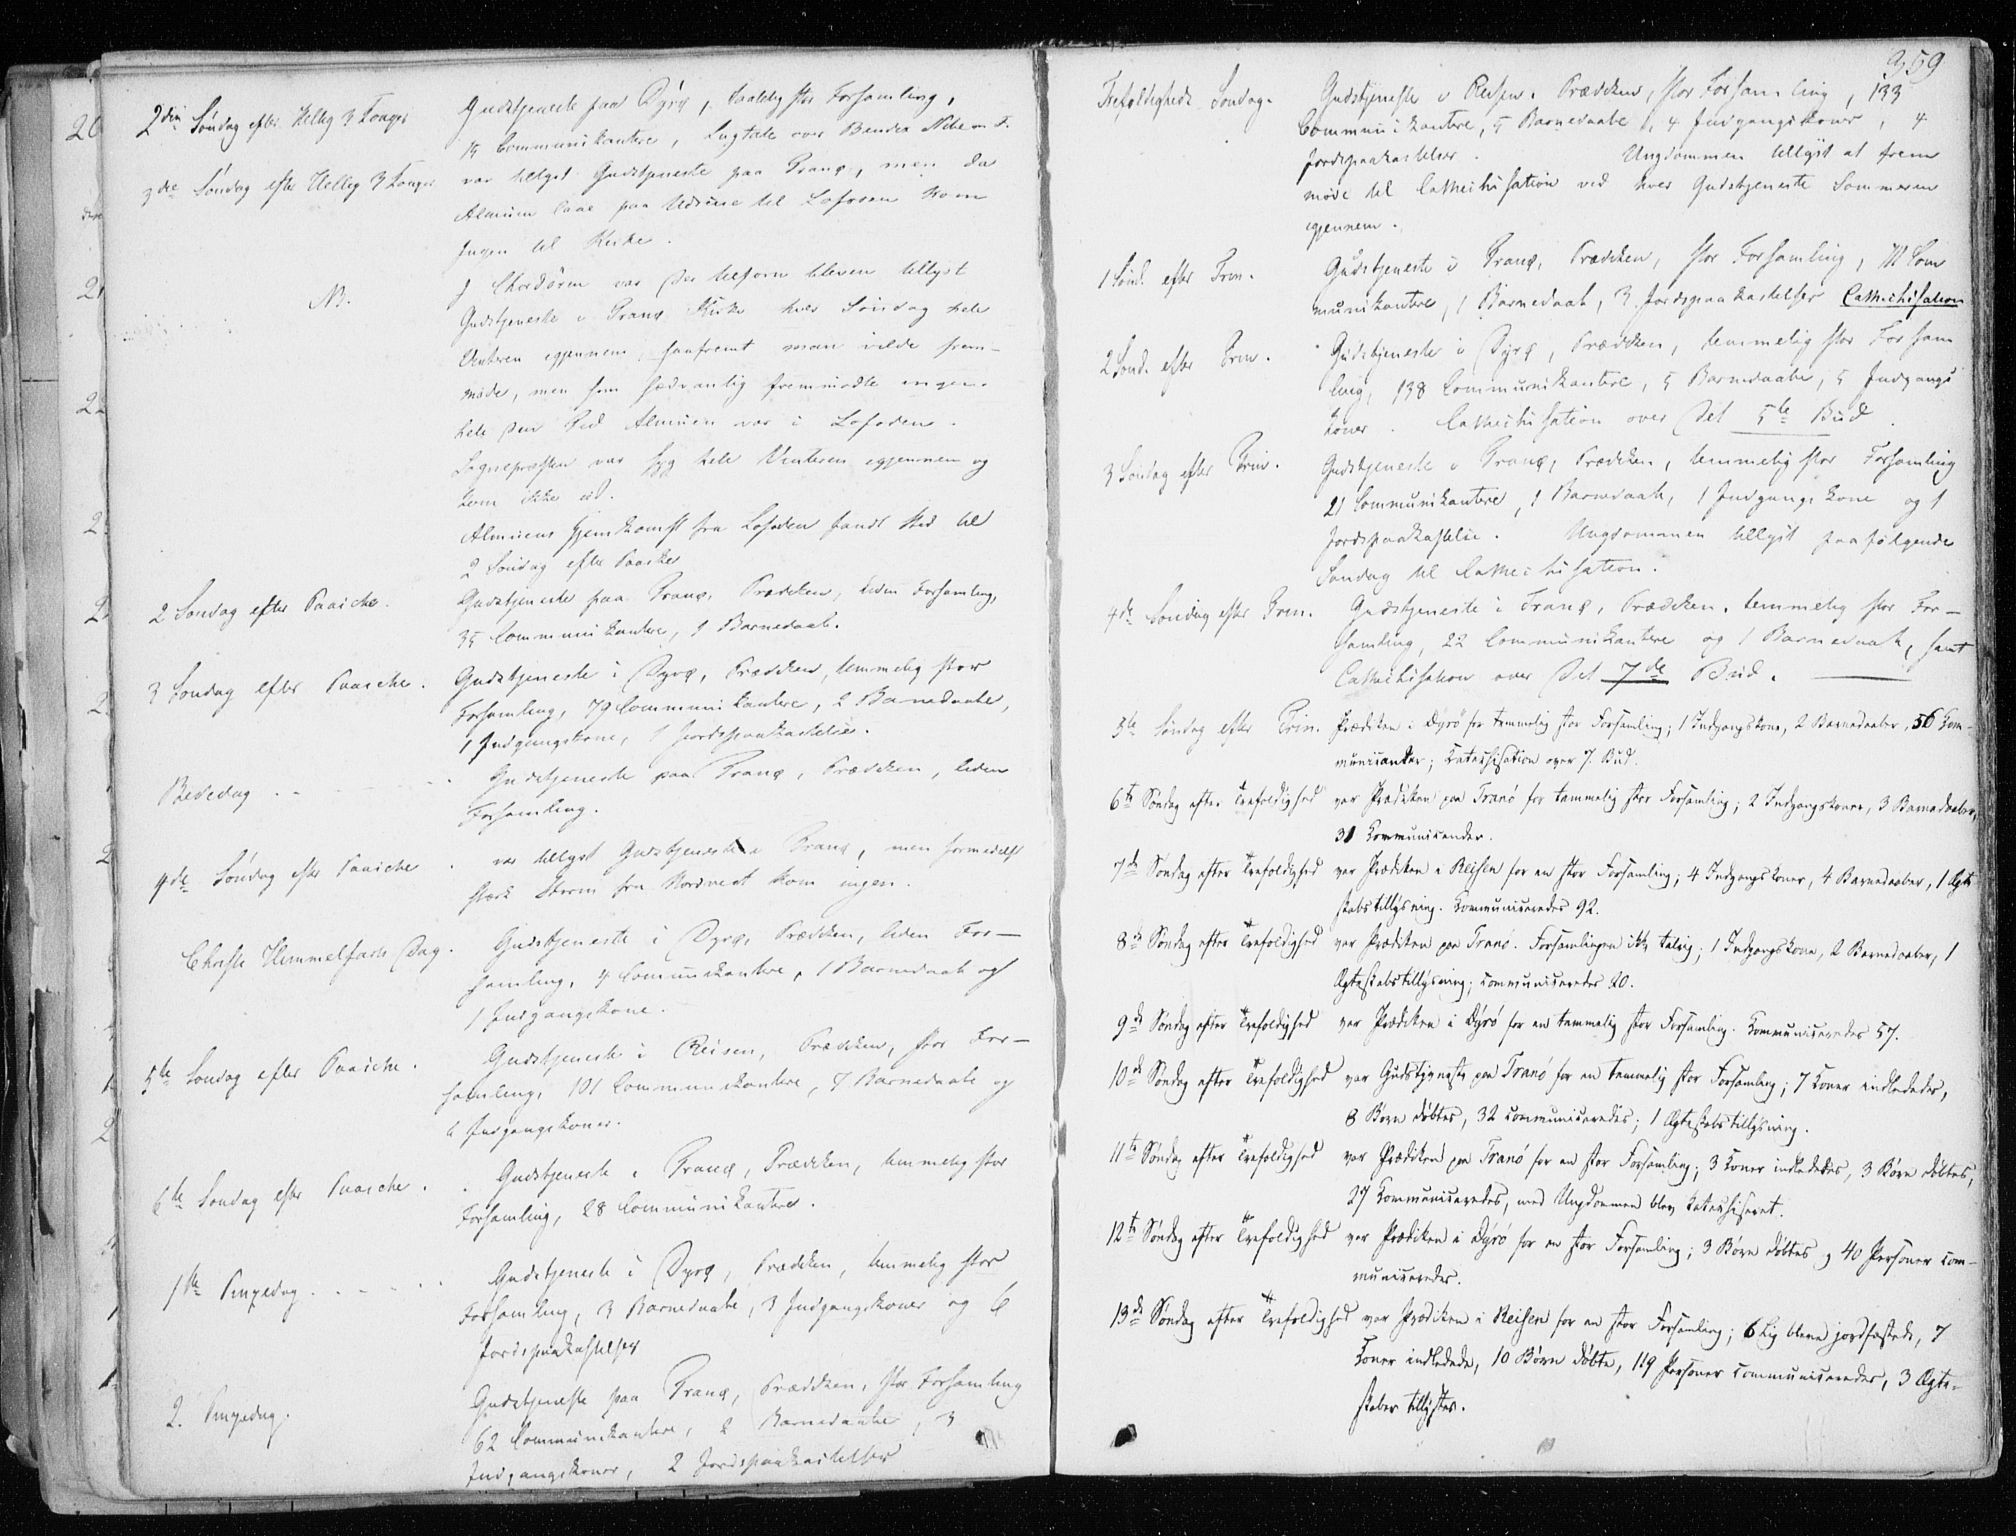 2den Søndag efter Hellig 3 Konger Gudstjeneste paa Dyrø, taalelig stor Forsamling,
15 Communikantere,
3die Søndag efter Hellig 3 Konger var tillyst Gudstjeneste paa Tranø, men da
Almuen laae paa Udreise til Lofoten kom
Ingen til Kirke.
NB. I Chordøren var der tilforn bleven tillyst
Gudstjeneste i Tranø Kirke hver Søndag hele
Vinteren igjennem, saafremt man vilde frem-
møde, men som sædvanlig fremmødte ingen
hele den Tid Almuen var i Lofoden.
Sognepræsten var syg hele Vinteren igjennem og
kom ikke ud.
Almuens Hjemkomst fra Lofoden fandt Sted til
2 Søndag efter Paaske
2 Søndag efter Paasche. Gudstjeneste paa Tranø, Prædiken, liden Forsamling,
35 Communikantere, 1 Barnedaab.
3 Søndag efter Paasche. Gudstjeneste i Dyrø, Prædiken, temmelig stor
Forsamling, 79 Communikantere, 2 Barnedaabe,
1 Indgangskone, 1 Jordspaakastelse.
Bededag Gudstjeneste paa Tranø, Prædiken, liden
Forsamling.
4de Søndag efter Paasche var tillyst Gudstjeneste i Tranø, men formedelst
stærk Storm fra Nordvest kom ingen.
Christi Himmelfarts Dag. Gudstjeneste i Dyrø, Prædiken, liden For-
samling, 4 Communikantere, 1 Barnedaab og
1 Indgangskone.
5te Søndag efter Paasche. Gudstjeneste i Reisen, Prædiken, stor For-
samling, 101 Communikantere, 7 Barnedaabe og
6 Indgangskoner.
6te Søndag efter Paasche. Gudstjeneste i Tranø, Prædiken, temmelig stor
Forsamling, 28 Communikantere.
1ste Pinsedag Gudstjeneste i Dyrø, Prædiken, temmelig stor
Forsamling, 3 Barnedaabe, 3 Indgangskoner og 6
Jordspaakastelser
2. Pinsedag. Gudstjeneste paa Tranø, Prædiken, stor Forsamling
62 Communikantere, 2 Barnedaabe, 3
Indgangskoner, 2 Jordspaakastelser
359
Trefoldigheds Søndag. Gudstjeneste i Reisen. Prædiken, stor Forsamling, 133
Communikantere, 5 Barnedaabe, 4 Indgangskoner, 4
Jordspaakastelser. Ungdommen tillyst at frem
møde til Catechisation ved hver Gudstjeneste Sommeren
igjennem.
1 Sønd. efter Trin. Gudstjeneste i Tranø, Prædiken, stor Forsamling, Com
munikantere, 1 Barnedaab, 3 Jordspaakastelser Cathechisation
2 Sønd. efter Trin. Gudstjeneste i Dyrø, Prædiken, temmelig stor Forsam
ling, 138 Communikantere, 5 Barnedaabe, 5 Indgangs
koner. Cathechisation over det 5te Bud.
3 Søndag efter Trin. Gudstjeneste i Tranø, Prædiken, temmelig stor Forsamling
21 Communikantere, 1 Barnedaab, 1 Indgangskone og 1
Jordspaakastelse. Ungdommen tillyst paafølgende
Søndag til Cathechisation.
4de Søndag efter Trin. Gudstjeneste i Tranø, Prædiken, temmelig stor For-
samling, 22 Communikantere og 1 Barnedaab, samt
Cathechisation over det 7de Bud.
5te Søndag efter Trin. Prædiken i Dyrø for temmelig stor Forsamling; 1 Indgangskone, 2 Barnedaaber, 56 Kom-
municanter; Katechisation over 7. Bud.
6te Søndag efter Trefoldighed var Prædiken paa Tranø for temmelig stor Forsamling; 2 Indgangskoner, 3 Barnedaaber,
31 Kommunicender.
7de Søndag efter Trefoldighed var Prædiken i Reisen for en stor Forsamling; 4 Indgangskoner, 4 Barnedaaber, 1 Ægte
skabstillysning. Kommuniceredes 92.
8de Søndag efter Trefoldighed var Prædiken paa Tranø. Forsamlingen ikke talrig; 1 Indgangskone, 2 Barnedaaber, 1
Ægteskabstillysning; communiceredes 20.
9de Søndag efter Trefoldighed var Prædiken i Dyrø for en temmelig stor Forsamling. Kommuniceredes 57.
10de Søndag efter Trefoldighed var Gudstjeneste paa Tranø for en temmelig stor Forsamling; 7 Koner indlededes,
8 Børn døbtes, 32 communiceredes; 1 Ægteskabstillysning.
11te Søndag efter Trefoldighed var Prædiken paa Tranø for en stor Forsamling; 3 Koner indlededes, 3 Børn døbtes,
27 Kommuniceredes, med Ungdommen blev katechiseret.
12te Søndag efter Trefoldighed var Prædiken i Dyrø for en stor Forsamling; 3 Børn døbtes og 40 Personer com-
municeredes.
13de Søndag efter Trefoldighed var Prædiken i Reisen for en stor Forsamling; 6 Lig bleve jordfæstede, 7
Koner indledede, 10 Børn døbte, 119 Personer communiceredes, 3 Ægte-
skaber tillystes.